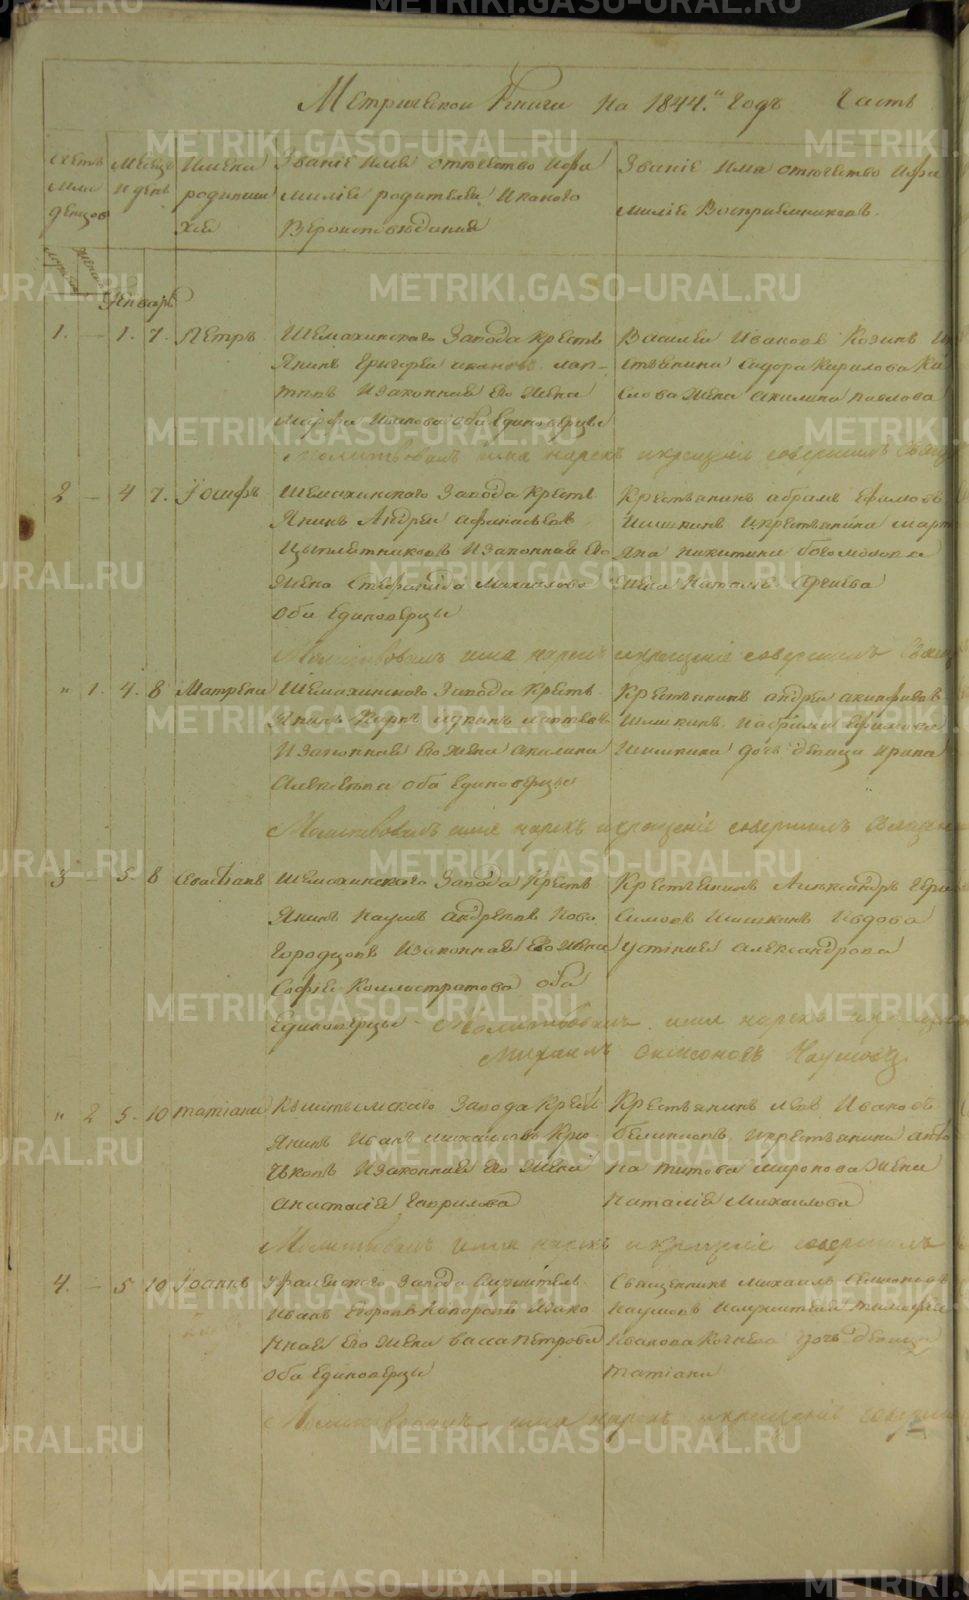 Метрической Книги на 1844.й Годъ Часть
Счетъ Мла денцов
Месецъ и день
Имена родивши хся
Званiе имя отчество и фа
милiе родителей и какого
Вероисповеданiя
Званiе имя отчество и фа
милiе Восприемниковъ.
Генварь
1. — 1. 7. Петръ
Шемахинского Завода Кресть
янинъ Григорей Ивановъ Лап-
тевъ и законная его жена
Марфа Иванова оба Единоверцы
Василей Ивановъ Козинъ
стьянина Сидора Кирилова Ки
слова жена Акилина Павлова
Молитвовалъ имя нарекъ и крещенiе совершилъ Свящ
2 — 4 7. Iосифъ
Шемахинского Завода Кресть
янинъ Андрей Афанасьевъ
и законная его
жена Стефанида Михаилова
оба Единоверцы
Крестьянинъ Абрамъ Ефимовъ
Шишкинъ и крестьянина Март
яна Никитина Богомолова
жена Наталiя
Молитвовалъ имя нарекъ и крещенiе совершилъ Свящ
" 1. 4. 8 Матрена
Шемахинского Завода Кресть
янинъ Карпъ Лаптевъ
и законная его жена Акилина
Алексеева оба Единоверцы
Крестьянинъ Андрей Акинфиевъ
Шишкинъ и Абрама Ефимова
Шишкина дочь девица Ирина
Молитвовалъ имя нарекъ и крещенiе совершилъ Священ
3 — 5. 8 Севастiанъ
Шемахинского Завода Кресть
янинъ Наумъ Андреевъ Ново
городцовъ и законная его жена
Софiя Каллистратова оба
Единоверцы Молитвовалъ имя нарекъ и кр
Михаилъ Симеоновъ Наумовъ
Крестьянинъ Александръ Гера
симовъ Шишкинъ вдова
Устинiя Александрова
" 2 5. 10 Татiана
Кыштымского Завода Кресть
янинъ Иванъ Михаиловъ Крю
чковъ и законная его жена
Анастасiя Гаврилова
Крестьянинъ Левъ Ивановъ
и крестьянина
Титова Миронова жена
Наталiя Михаилова
Молитвовалъ имя нарекъ и крещенiе совершилъ
4. — 5 10 Iоаннъ
Уфалейского Завода служитель
Иванъ Егоровъ и зако
нная его жена Васса Петрова
оба Единоверцы
Священникъ Михаилъ Симеоновъ
Наумовъ и служителя Тимофея
Иванова дочь девица
Татiана
Молитвовалъ имя нарекъ и крещенiе соверши
METRIKI.GASO-URAL.RU